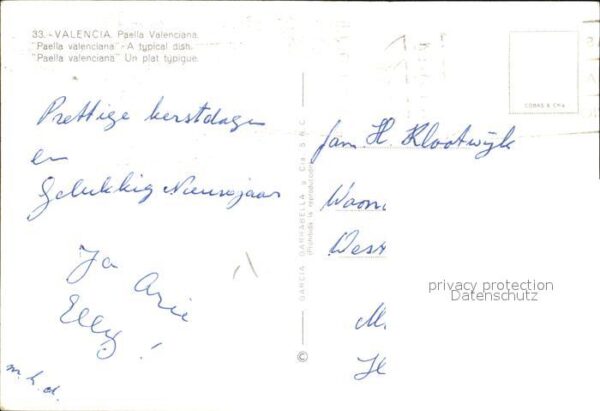 33.-VALENCIA. Paella Valenciana.
"Paella valenciana" - A typical dish.
"Paella valenciana" Un plat typique.
COBAS & CHA
Prettige kerstdagen
en
Gelukkig Nieuwjaar
Ja Arie
Elly!
m.h.d.
GARCIA GARRABELLA y Cia. S.R.C.
(Prohibida la reproducción)
©
fam H Klootwijk
Woon
West
M.
H
privacy protection
Datenschutz